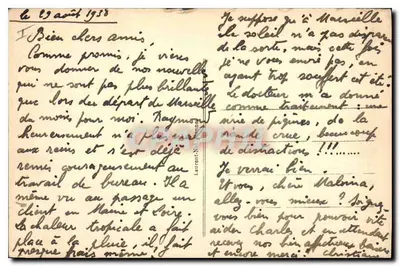 le 29 août 1958
Bien chers amis,
Comme promis, je viens
vous donner de nos nouvelles
qui ne sont pas plus brillantes
que lors du départ de Marseille
du moins pour moi. Raymond
heureusement n'a plus mal
aux reins et s'est déjà
remis courageusement au
travail de bureau. Il a
même vu au passage un
client en Maine et Loire.
La chaleur tropicale a fait
place à la pluie, il fait
presque frais même.
Je suppose qu'à Marseille
le soleil n'a pas disparu
de la sorte, mais cette fois
je ne vous envie pas, en
ayant trop souffert cet été.
Le docteur m'a donné
comme traitement : une
série de piqûres, de la
viande crue, beaucoup
de distractions !!!.....
Je verrai bien.
Et vous, chère Malvina,
allez-vous mieux ? Soignez
vous bien pour pouvoir vite
aider Charles et en attendant
recevez nos bien affectueux baisers
et encore merci. Christiane